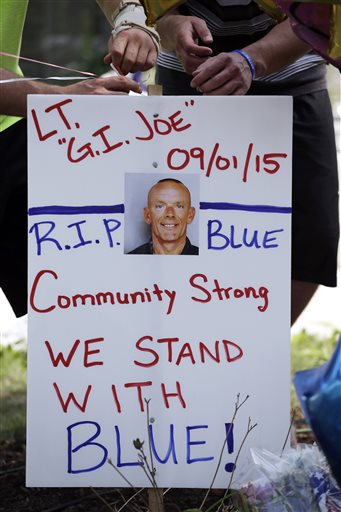 LT.
"G.I. JOE"
09/01/15
R.I.P. BLUE
Community Strong
WE STAND
WITH
BLUE!